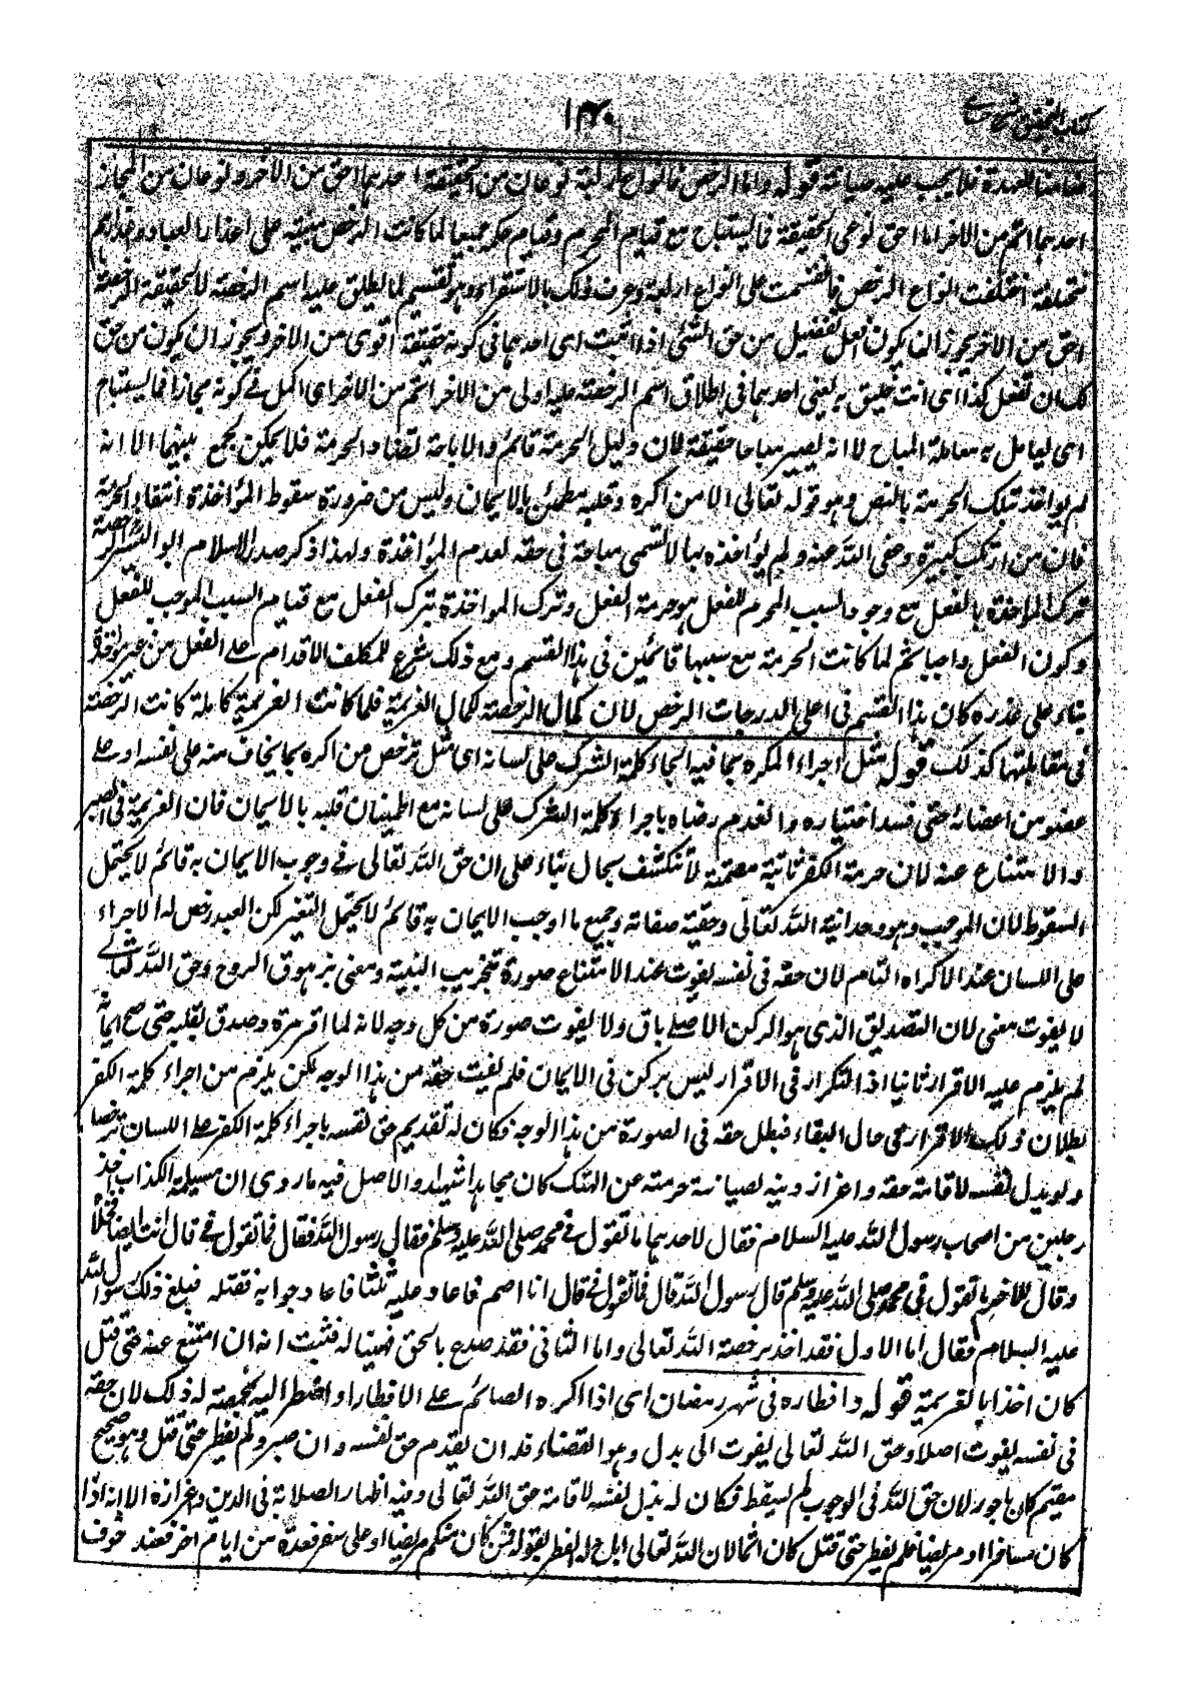 كتاب التحقيق شرح حسامي
١٤٠
ضامنا للعهدة فلا يجب عليه صيانة قوله واما الرخص فانواع اربعة نوعان من الحقيقة احدهما احق من الآخر ونوعان من المجاز
احدهما اتم من الآخر اما احق نوعي الحقيقة فما يستباح مع قيام المحرم وقيام حكمه جميعا لما كانت الرخص مبنية على اعذار العباد واعذارهم
مختلفة اختلفت انواع الرخص فانقسمت على انواع اربعة وعرف ذلك بالاستقراء وهو تقسيم لما يطلق عليه اسم الرخصة لا لحقيقة الرخصة
احق من الآخر يجوز ان يكون افعل تفضيل من حق الشئ اذا ثبت اى احدهما فى كونه حقيقة اقوى من الآخر ويجوز ان يكون من حق
لك ان تفعل كذا اى انت خليق به يعنى احدهما فى اطلاق اسم الرخصة عليه اولى من الآخر اتم من الآخر اى اكمل فى كونه مجازا فما يستباح
اى يعامل به معاملة المباح لا انه يصير مباحا حقيقة لان دليل الحرمة قائم والاباحة تضاد الحرمة فلا يمكن جمع بينهما الا انه
لم يؤاخذ بتلك الحرمة بالنص وهو قوله تعالى الا من اكره وقلبه مطمئن بالايمان وليس من ضرورة سقوط المؤاخذة انتفاء الحرمة
فان من ارتكب كبيرة وعفى الله عنه ولم يؤاخذه بها لا تسمى مباحة فى حقه لعدم المؤاخذة ولهذا ذكر صدر الاسلام ابو اليسر الرخصة
ترك المؤاخذة بالفعل مع وجود السبب المحرم للفعل هو حرمة الفعل وترك المؤاخذة بترك الفعل مع قيام السبب الموجب للفعل
وكون الفعل واجبا ثم لما كانت الحرمة مع سببها قائمين فى هذا القسم ومع ذلك شرع للمكلف الاقدام على الفعل من غير مؤاخذة
بناء على عذره كان هذا القسم فى اعلى الدرجات الرخص لان كمال الرخصة لكمال العزيمة فلما كانت العزيمة كاملة كانت الرخصة
فى مقابلتها كذلك قوله مثل اجراء المكره بما فيه الجاء كلمة الشرك على لسانه اى مثل ترخص من اكره بما يخاف منه على نفسه او على
عضو من اعضائه حتى فسد اختياره وانعدم رضاه باجراء كلمة الشرك على لسانه مع اطمينان قلبه بالايمان فان العزيمة فى الصبر
والامتناع عنه لان حرمة الكفر ثابتة مصمتة لا تنكشف بحال بناء على ان حق الله تعالى فى وجوب الايمان به قائم لا يحتمل
السقوط لان الموجب وهو وحدانية الله تعالى وحقية صفاته وجميع ما اوجب الايمان به قائم لا يحتمل التغير لكن العبد رخص له الاجراء
على اللسان عند الاكراه التام لان حقه فى نفسه يفوت عند الامتناع صورة بتخريب البنية ومعنى بزهوق الروح وحق الله تعالى
لا يفوت معنى لان التصديق الذى هو الركن الاصلى باق ولا يفوت صورة من كل وجه لانه لما اقر مرة وصدق بقلبه حتى صح ايمانه
لم يلزم عليه الاقرار ثانيا اذ التكرار فى الاقرار ليس بركن فى الايمان فلم يفت حقه من هذا الوجه لكن يلزم من اجراء كلمة الكفر
بطلان ذلك الاقرار فى حال البقاء فبطل حقه فى الصورة من هذا الوجه فكان له تقديم حق نفسه باجراء كلمة الكفر على اللسان ترخصا
ولو بذل نفسه لاقامة حقه واعزاز دينه لصيانة حرمته عن الهتك كان مجاهدا شهيدا والاصل فيه ما روى ان مسيلمة الكذاب اخذ
رجلين من اصحاب رسول الله عليه السلام فقال لاحدهما ما تقول فى محمد صلى الله عليه وسلم فقال رسول الله فقال فما تقول فى قال انت ايضا فخلاه
وقال للآخر ما تقول فى محمد صلى الله عليه وسلم قال رسول الله قال فما تقول فى قال انا اصم فاعاد عليه ثلثا فاعاد جوابه فقتله فبلغ ذلك رسول الله
عليه السلام فقال اما الاول فقد اخذ برخصة الله تعالى واما الثانى فقد صدع بالحق فهنيئا له فثبت انه ان امتنع عنه حتى قتل
كان اخذا بالعزيمة قوله وافطاره فى شهر رمضان اى اذا اكره الصائم على الافطار او اضطر اليه بمخمصة له ذلك لان حقه
فى نفسه يفوت اصلا وحق الله تعالى يفوت الى بدل وهو القضاء فله ان يقدم حق نفسه وان صبر ولم يفطر حتى قتل وهو صحيح
مقيم كان ماجورا لان حق الله فى الوجوب لم يسقط فكان له بذل نفسه لاقامة حق الله تعالى وفيه اظهار الصلابة فى الدين واعزازه الا انه اذا
كان مسافرا او مريضا فلم يفطر حتى قتل كان آثما لان الله تعالى اباح له الفطر بقوله فمن كان منكم مريضا او على سفر فعدة من ايام اخر فعند خوف